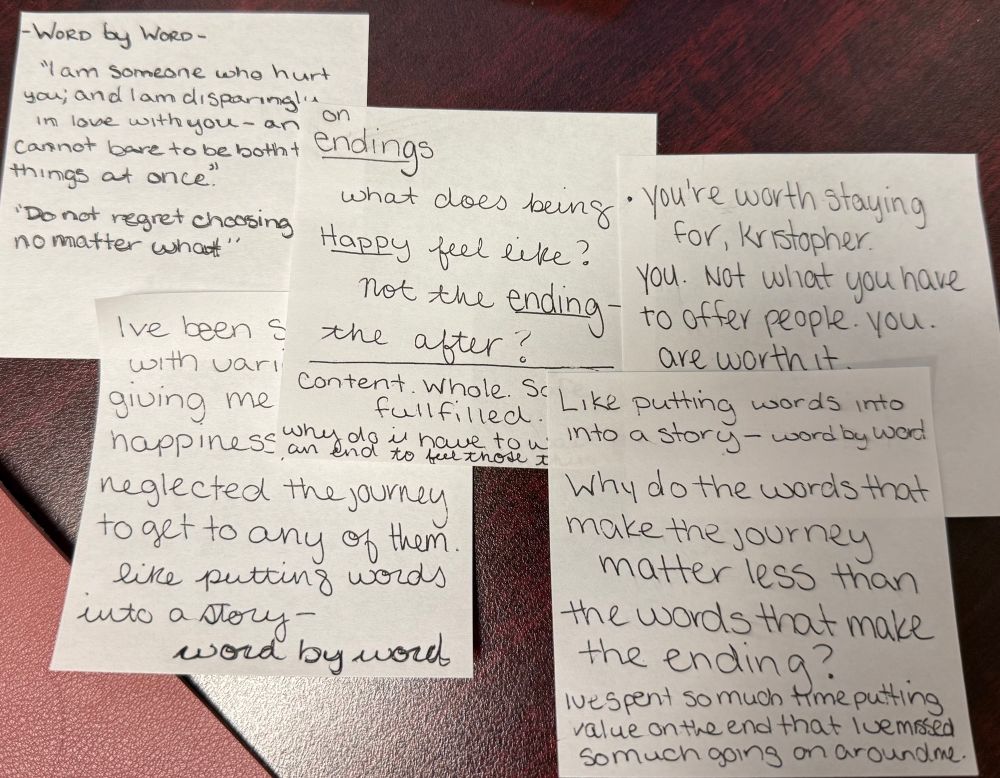 -WORD by WORD-
"I am someone who hurt
you; and I am disparingly
in love with you - an
cannot bare to be both t
things at once."
"Do not regret choosing
no matter what"
on
endings
what does being
Happy feel like?
not the ending -
the after?
content. Whole. So
fullfilled.
why do i have to w
an end to feel those t
• you're worth staying
for, Kristopher.
you. Not what you have
to offer people. you.
are worth it.
Ive been s
with vari
giving me
happiness
neglected the journey
to get to any of them.
like putting words
into a story -
word by word
Like putting words into
into a story - word by word
Why do the words that
make the journey
matter less than
the words that make
the ending?
Ive spent so much time putting
value on the end that Ive missed
so much going on around me.